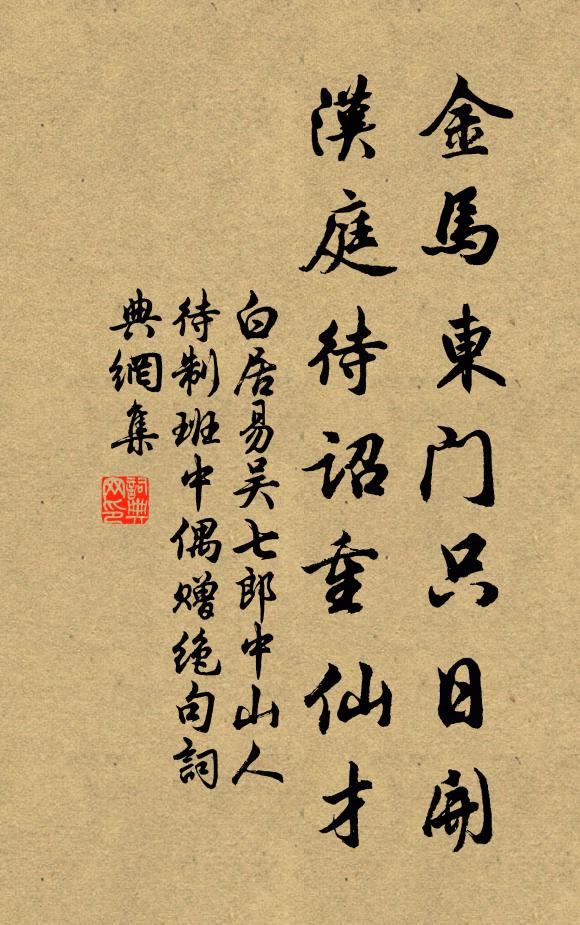 金馬東门只日開
漢庭待诏重仙才
白居易吴七郎中山人
待制班中偶赠绝句詞
典網集
詞典網印